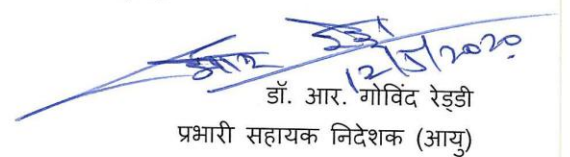 12/5/2020
डॉ. आर. गोविंद रेड्डी
प्रभारी सहायक निदेशक (आयु)